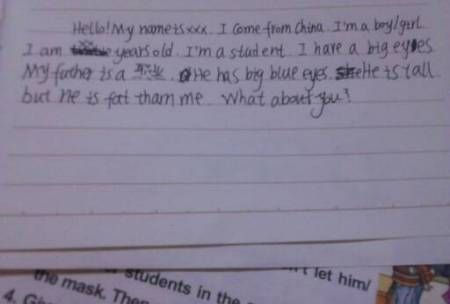 Hello! My name is xxx. I come from China. I'm a boy/girl.
I am years old. I'm a student. I have a big eyes
My further is a 职业. He has big blue eyes. He is tall
but he is fat tham me. What about you?
't let him/
students in the
the mask. Then
4. Gi